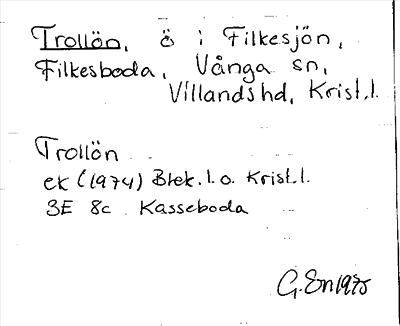 Trollön, ö i Filkesjön,
Filkesboda, Vånga sn,
Villands hd, Krist.l.
Trollön
ek (1974) Blek.l.o. Krist.l.
3E 8c Kasseboda
G. En 1975